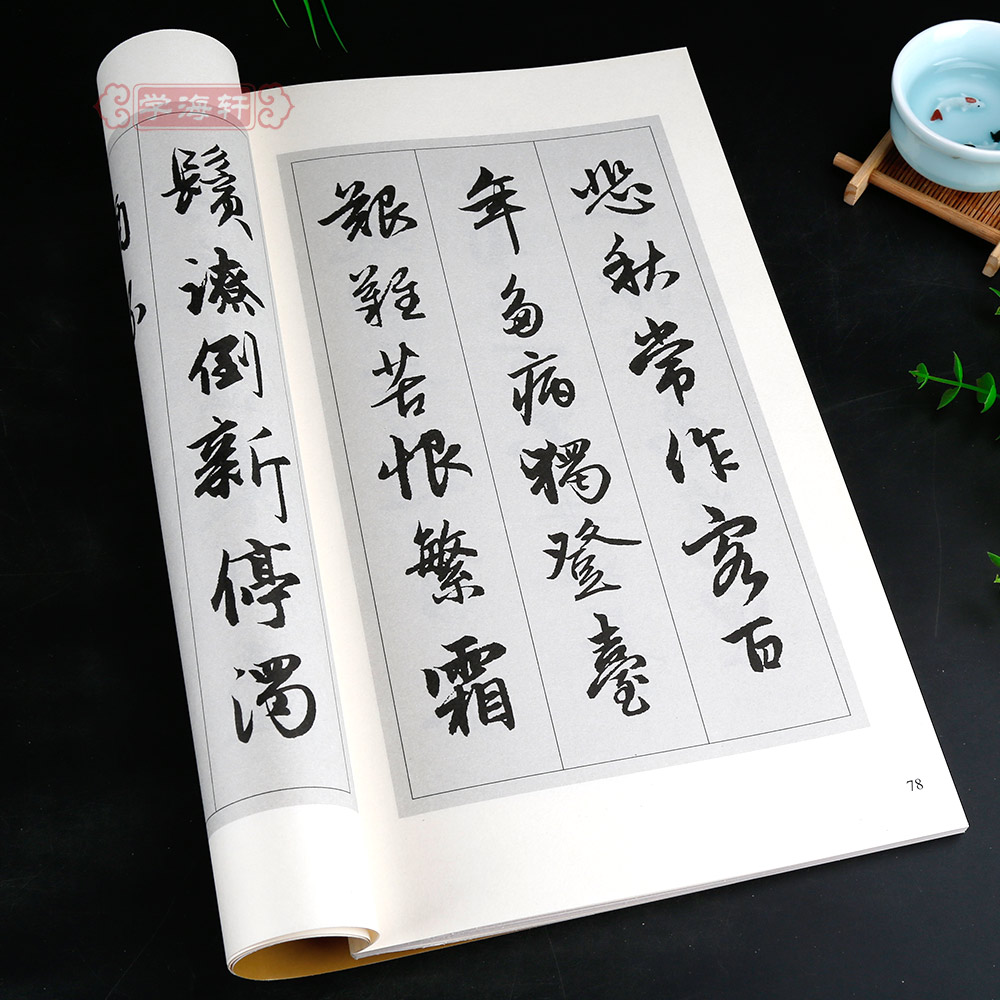 学海轩
悲秋常作客百
年多病獨登臺
艱難苦恨繁霜
鬢潦倒新停濁
78